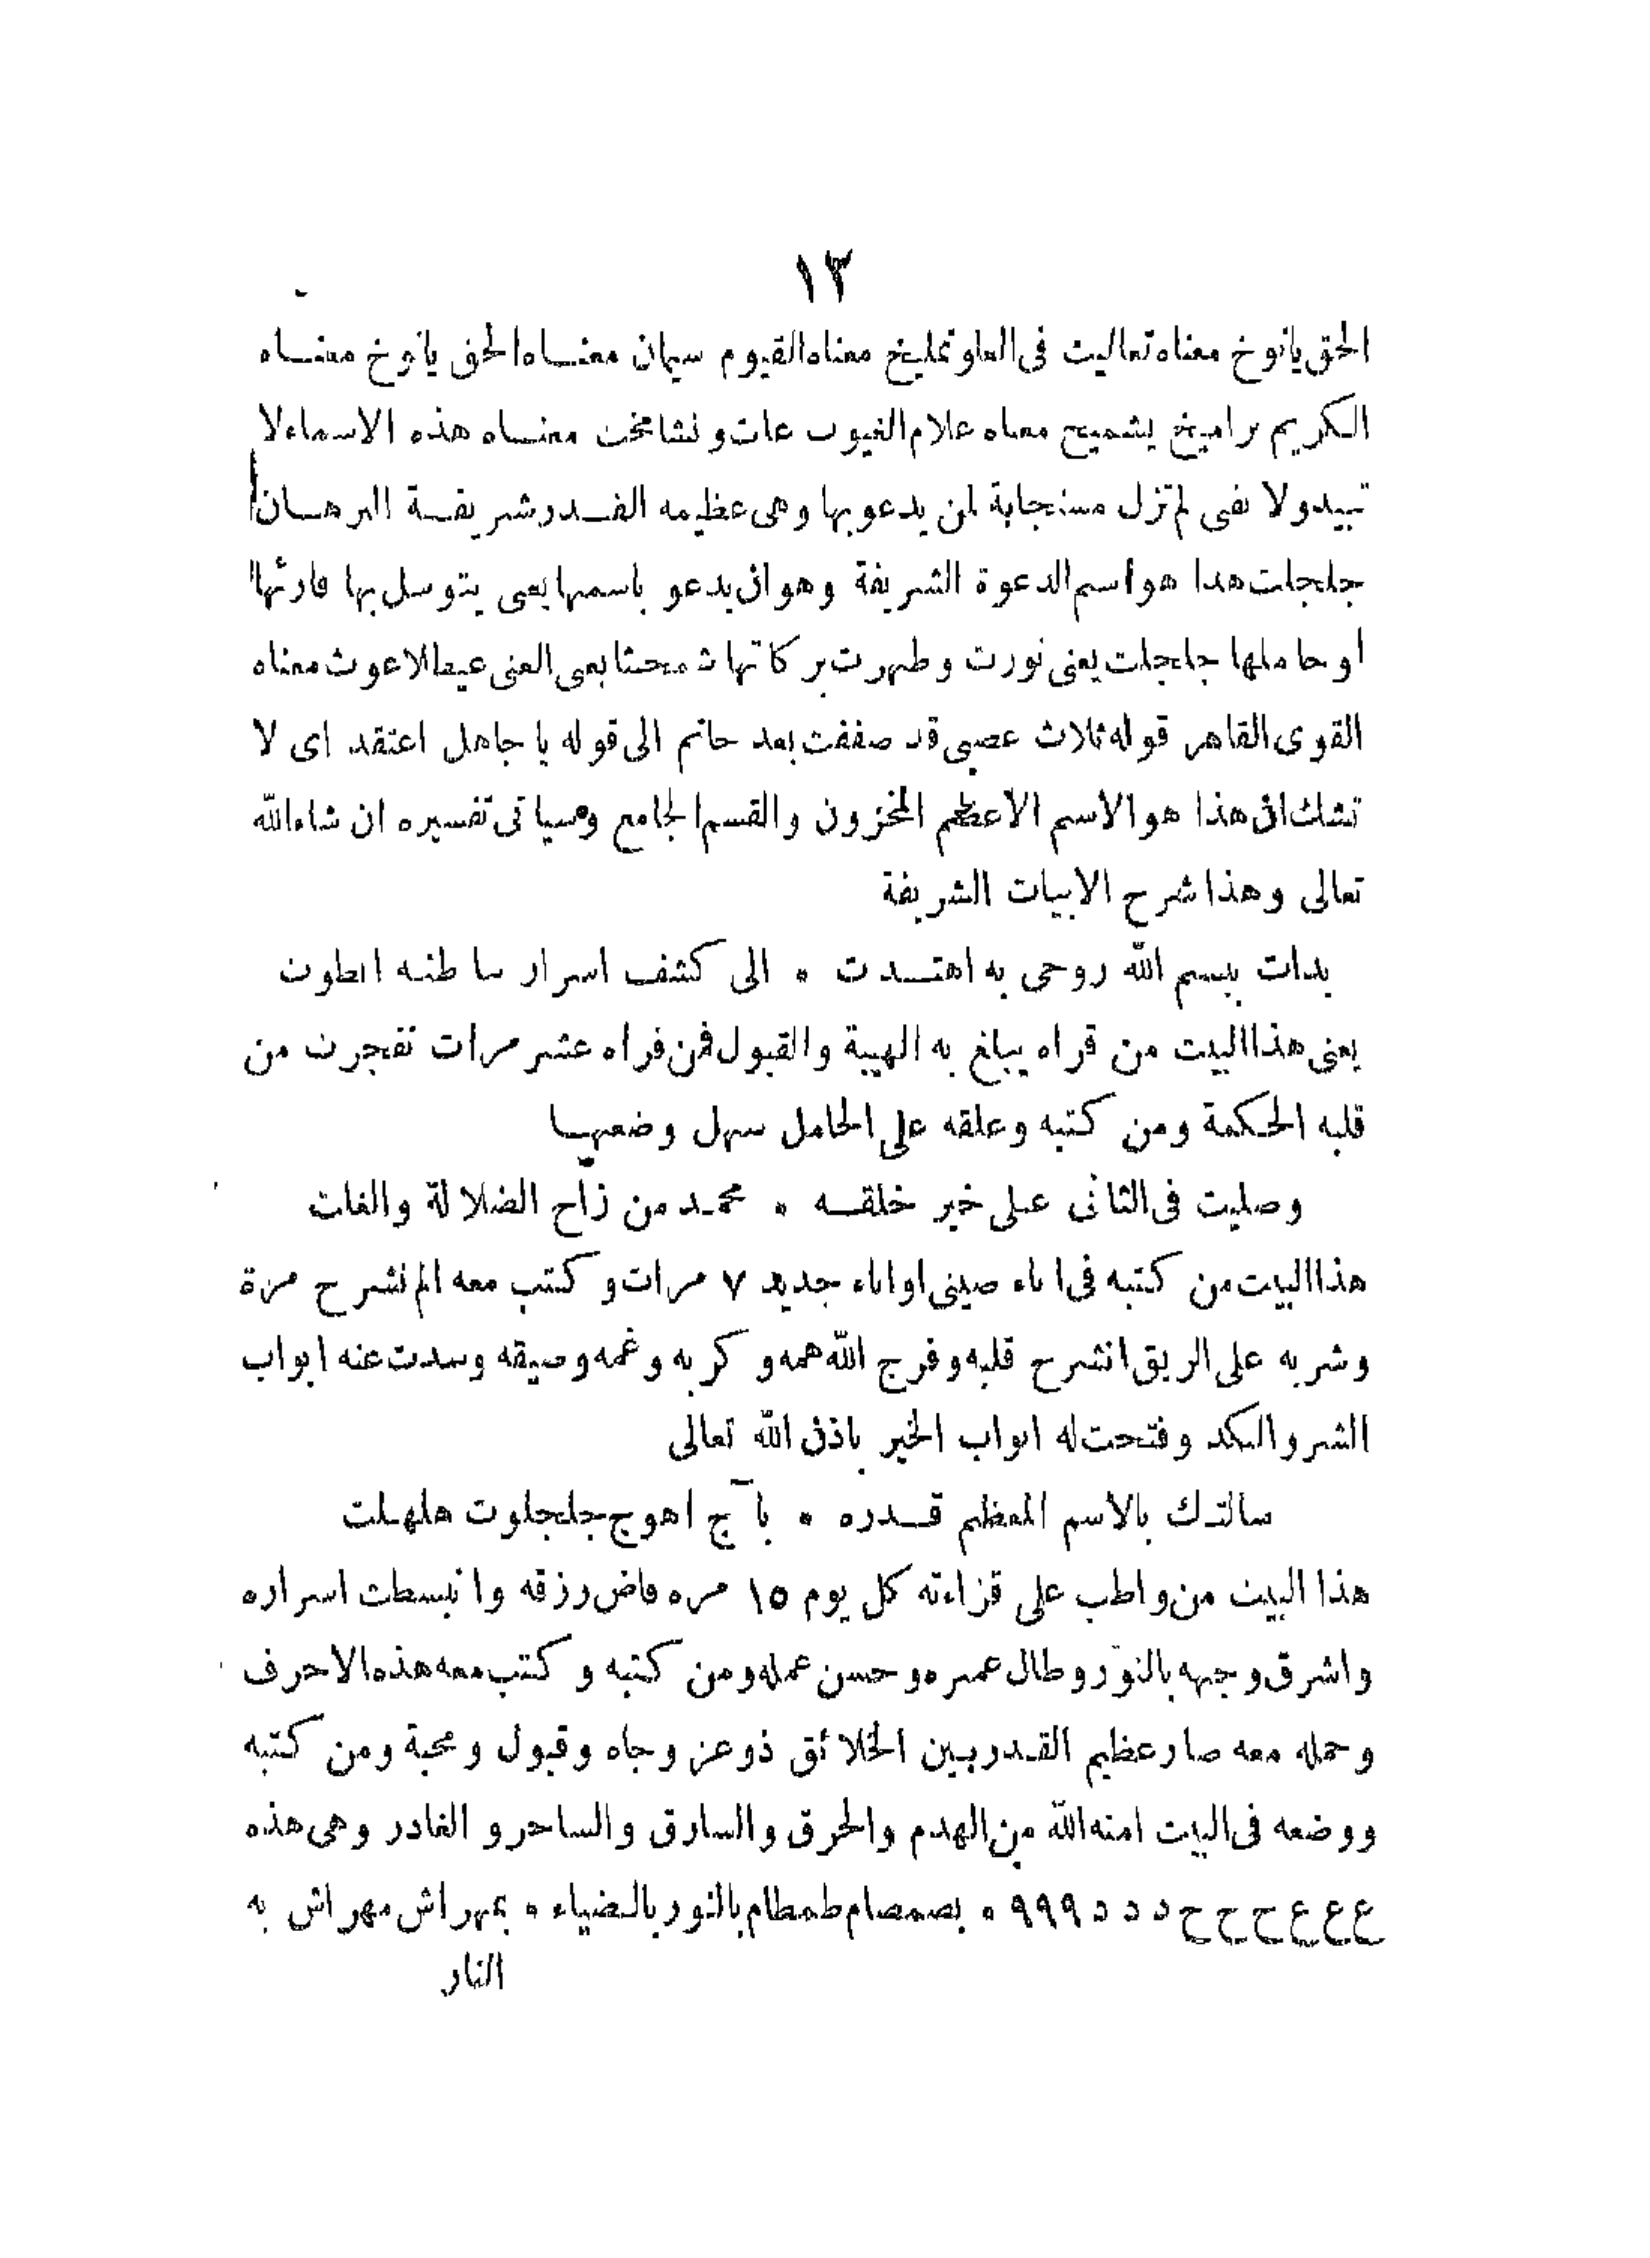 ١٣
الحق يانوخ معناه تعاليت فى العلو تمليخ معناه القيوم سيمان معناه الحق يانوخ معناه
الكريم براميخ يشميح معناه علام الغيوب عات ونشامخت معناه هذه الاسماء لا
تبيد ولا تفنى لم تزل مستجابة لمن يدعو بها وهى عظيمه القدر شريفة البرهان
جلجلت هذا هو اسم الدعوة الشريفة وهو ان يدعو باسمها يعنى يتوسل بها قارئها
او حاملها جلجلت يعنى نورت وظهرت بركاتها يعنى الغنى معناه
القوى القاهر قوله ثلاث عصى قد صففت بعد حاتم الى قوله يا جاهل اعتقد اى لا
تشك ان هذا هو الاسم الاعظم المخزون والقسم الجامع وسياتى تفسيره ان شاء الله
تعالى وهذا شرح الابيات الشريفة
بدات ببسم الله روحى به اهتدت ۰ الى كشف اسرار بباطنه انطوت
يعنى هذا البيت من قراه يبلغ به الهيبة والقبول فمن قراه عشر مرات تفجرت من
قلبه الحكمة ومن كتبه وعلقه على الحامل سهل وضعها
وصليت فى الثانى على خير خلقه ۰ محمد من زاح الضلالة والغلت
هذا البيت من كتبه فى اناء صينى او اناء جديد ٧ مرات وكتب معه الم نشرح مرة
وشربه على الريق انشرح قلبه وفرج الله همه وكربه وغمه وضيقه وسدت عنه ابواب
الشر والنكد وفتحت له ابواب الخير باذن الله تعالى
سالتك بالاسم المعظم قدره ۰ بآج اهوج جلجلوت هلهلت
هذا البيت من واظب على قراءته كل يوم ١٥ مره فاض رزقه وانبسطت اسراره
واشرق وجهه بالنور وطال عمره وحسن عمله ومن كتبه وكتب معه هذه الاحرف
وحمله معه صار عظيم القدر بين الخلائق ذو عز وجاه وقبول ومحبة ومن كتبه
ووضعه فى البيت امنه الله من الهدم والحرق والسارق والساحر والغادر وهى هذه
ع ع ع ح ح ح د د د ٩٩٩ ۰ بصمصام طمطام بالنور بالضياء ۰ بمهراش مهراش به
النار